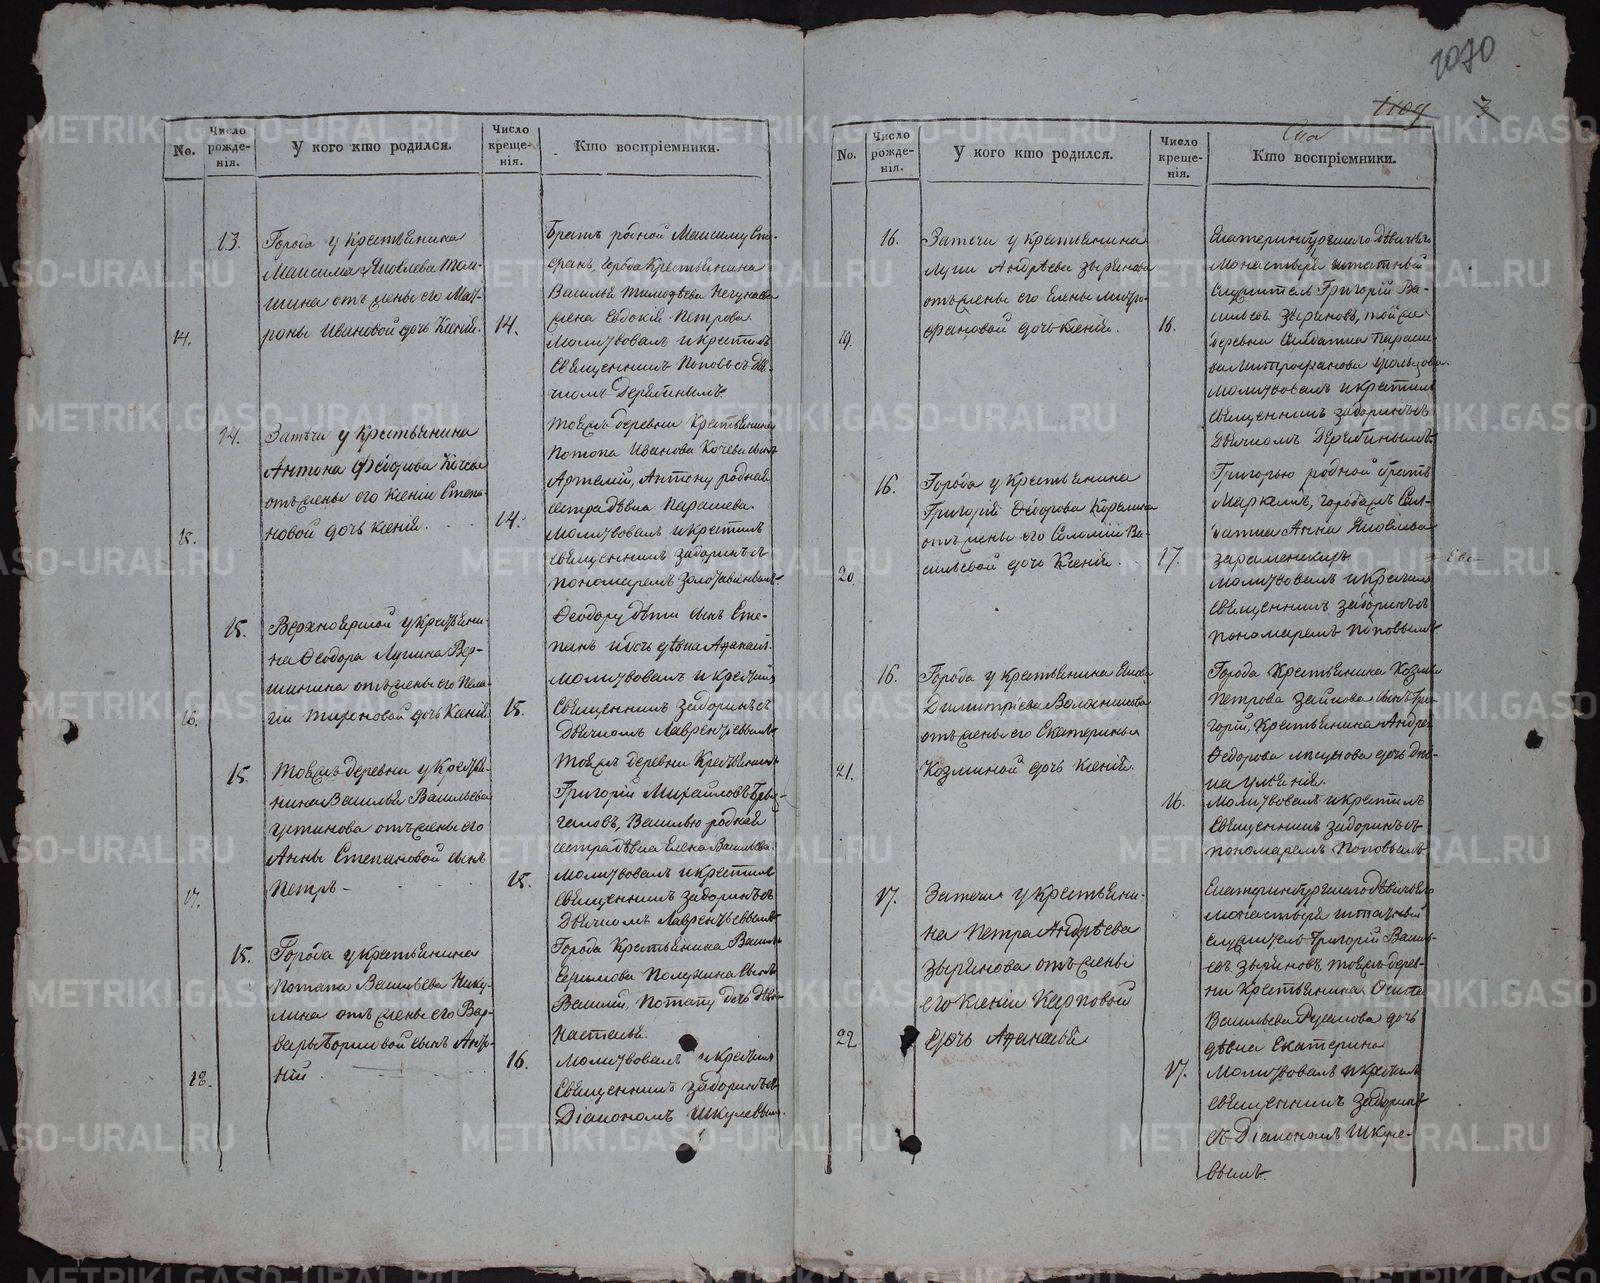 1070
No.
Число
рожде-
нія.
У кого кто родился.
Число
креще-
нія.
Кто воспріемники.
13.
Города у крестьянина
Максима Яковлева
шина отъ жены его Мат-
роны Ивановой дочь Ксенія.
14.
14.
Братъ родной Максиму Сте-
фанъ, города крестьянина
Василья Тимофѣева
жена Евдокія Петрова.
Молитвовалъ и крестилъ
Священникъ Поповъ съ Дья-
чкомъ Дерябинымъ.
14.
Затечи у крестьянина
Антона Федорова Кочева
отъ жены его Ксеніи Степа-
новой дочь Ксенія.
15.
14.
Тоежъ деревни крестьянина
Потапа Иванова Кочева сынъ
Артемій, Антону родная
сестра дѣвка Парасковья.
Молитвовалъ и крестилъ
священникъ Задоринъ съ
пономаремъ
15.
у крестьяни-
на Феодора Лукина Вер-
шинина отъ жены его Пела-
гіи Тихоновой дочь Ксенія.
16.
15.
Феодору дѣти сынъ Сте-
панъ и дочь дѣвка Афанасья.
Молитвовалъ и крестилъ
Священникъ Задоринъ съ
Дьячкомъ Лаврентьевымъ
15.
Тоежъ деревни у крестья-
нина Василья Васильева
Устинова отъ жены его
Анны Степановой сынъ
Петръ.
17.
15.
Тоежъ деревни крестьянинъ
Григорій Михайловъ
Василью родная
сестра дѣвка Елена Васильева.
Молитвовалъ и крестилъ
священникъ Задоринъ съ
Дьячкомъ Лаврентьевымъ
15.
Города у крестьянина
Потапа Васильева Нику-
лина отъ жены его Вар-
вары Борисовой сынъ Анто-
ній.
18.
16.
Города крестьянина Василья
Ефимова Полухина сынъ
Василій, Потапу дочь дѣвка
Настасья.
Молитвовалъ и крестилъ
Священникъ Задоринъ съ
Діакономъ Шкулевымъ.
No.
Число
рожде-
нія.
У кого кто родился.
Число
креще-
нія.
Кто воспріемники.
16.
Затечи у крестьянина
Луки Андрѣева Зырянова
отъ жены его Елены Митро-
фановой дочь Ксенія.
19.
16.
Екатеринбургскаго дѣвичьяго
монастыря штатный
служитель Григорій Ва-
сильевъ Зыряновъ, той же
деревни солдатка Параско-
вья Митрофанова
Молитвовалъ и крестилъ
священникъ Задоринъ съ
Дьячкомъ Дерябинымъ.
16.
Города у крестьянина
Григорія Федорова
отъ жены его Соломіи Ва-
сильевой дочь Ксенія.
20.
17.
Григорью родной братъ
Маркелъ, города жъ сол-
датка Анна Яковлева
Молитвовалъ и крестилъ
священникъ Задоринъ съ
пономаремъ Поповымъ
16.
Города у крестьянина
Димитріева
отъ жены его Екатерины
Козминой дочь Ксенія.
21.
16.
Города крестьянина Козмы
Петрова Зайкова сынъ Гри-
горій, крестьянина Андрея
Федорова дочь дѣв-
ка Улья­нія.
Молитвовалъ и крестилъ
священникъ Задоринъ съ
пономаремъ Поповымъ
17.
Затечи у крестьяни-
на Петра Андрѣева
Зырянова отъ жены
его Ксеніи Карповой
дочь Афанасья
22
17.
Екатеринбургскаго дѣвичьяго
монастыря штатный
служитель Григорій Василь-
евъ Зыряновъ, тоежъ дерев-
ни крестьянина Осипа
Васильева Русакова дочь
дѣвка Екатерина
Молитвовалъ и крестилъ
священникъ Задоринъ
съ Діакономъ Шкуле-
вымъ.
METRIKI.GASO-URAL.RU